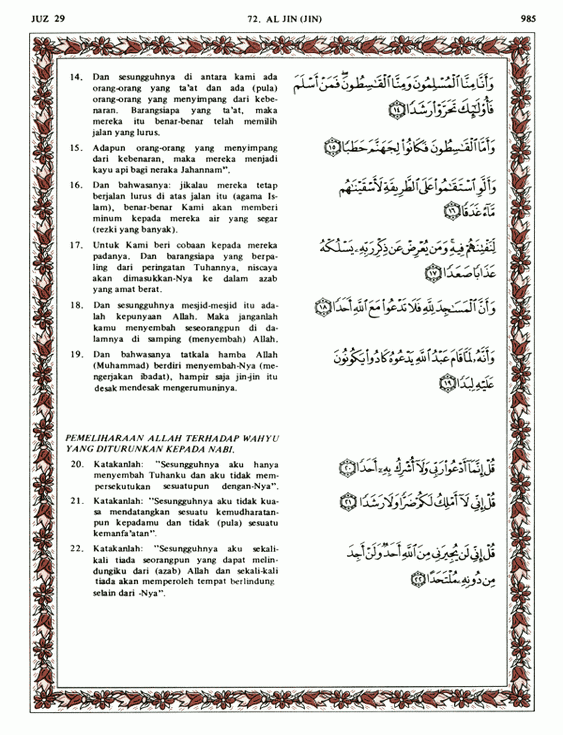 JUZ 29
72. AL JIN (JIN)
985
14. Dan sesungguhnya di antara kami ada
orang-orang yang ta'at dan ada (pula)
orang-orang yang menyimpang dari kebe-
naran. Barangsiapa yang ta'at, maka
mereka itu benar-benar telah memilih
jalan yang lurus.
وَأَنَّا مِنَّا ٱلْمُسْلِمُونَ وَمِنَّا ٱلْقَٰسِطُونَ ۖ فَمَنْ أَسْلَمَ
فَأُو۟لَٰٓئِكَ تَحَرَّوْا۟ رَشَدًا ١٤
15. Adapun orang-orang yang menyimpang
dari kebenaran, maka mereka menjadi
kayu api bagi neraka Jahannam".
وَأَمَّا ٱلْقَٰسِطُونَ فَكَانُوا۟ لِجَهَنَّمَ حَطَبًا ١٥
16. Dan bahwasanya: jikalau mereka tetap
berjalan lurus di atas jalan itu (agama Is-
lam), benar-benar Kami akan memberi
minum kepada mereka air yang segar
(rezki yang banyak).
وَأَلَّوِ ٱسْتَقَٰمُوا۟ عَلَى ٱلطَّرِيقَةِ لَأَسْقَيْنَٰهُم
مَّآءً غَدَقًا ١٦
17. Untuk Kami beri cobaan kepada mereka
padanya. Dan barangsiapa yang berpa-
ling dari peringatan Tuhannya, niscaya
akan dimasukkan-Nya ke dalam azab
yang amat berat.
لِّنَفْتِنَهُمْ فِيهِ ۚ وَمَن يُعْرِضْ عَن ذِكْرِ رَبِّهِۦ يَسْلُكْهُ
عَذَابًا صَعَدًا ١٧
18. Dan sesungguhnya mesjid-mesjid itu ada-
lah kepunyaan Allah. Maka janganlah
kamu menyembah seseorangpun di da-
lamnya di samping (menyembah) Allah.
وَأَنَّ ٱلْمَسَٰجِدَ لِلَّهِ فَلَا تَدْعُوا۟ مَعَ ٱللَّهِ أَحَدًا ١٨
19. Dan bahwasanya tatkala hamba Allah
(Muhammad) berdiri menyembah-Nya (me-
ngerjakan ibadat), hampir saja jin-jin itu
desak mendesak mengerumuninya.
وَأَنَّهُۥ لَمَّا قَامَ عَبْدُ ٱللَّهِ يَدْعُوهُ كَادُوا۟ يَكُونُونَ
عَلَيْهِ لِبَدًا ١٩
PEMELIHARAAN ALLAH TERHADAP WAHYU
YANG DITURUNKAN KEPADA NABI.
20. Katakanlah: "Sesungguhnya aku hanya
menyembah Tuhanku dan aku tidak mem-
persekutukan sesuatupun dengan-Nya".
قُلْ إِنَّمَآ أَدْعُوا۟ رَبِّى وَلَآ أُشْرِكُ بِهِۦٓ أَحَدًا ٢٠
21. Katakanlah: "Sesungguhnya aku tidak kua-
sa mendatangkan sesuatu kemudharatan-
pun kepadamu dan tidak (pula) sesuatu
kemanfa'atan".
قُلْ إِنِّى لَآ أَمْلِكُ لَكُمْ ضَرًّا وَلَا رَشَدًا ٢١
22. Katakanlah: "Sesungguhnya aku sekali-
kali tiada seorangpun yang dapat melin-
dungiku dari (azab) Allah dan sekali-kali
tiada akan memperoleh tempat berlindung
selain dari -Nya".
قُلْ إِنِّى لَن يُجِيرَنِى مِنَ ٱللَّهِ أَحَدٌ وَلَنْ أَجِدَ
مِن دُونِهِۦ مُلْتَحَدًا ٢٢